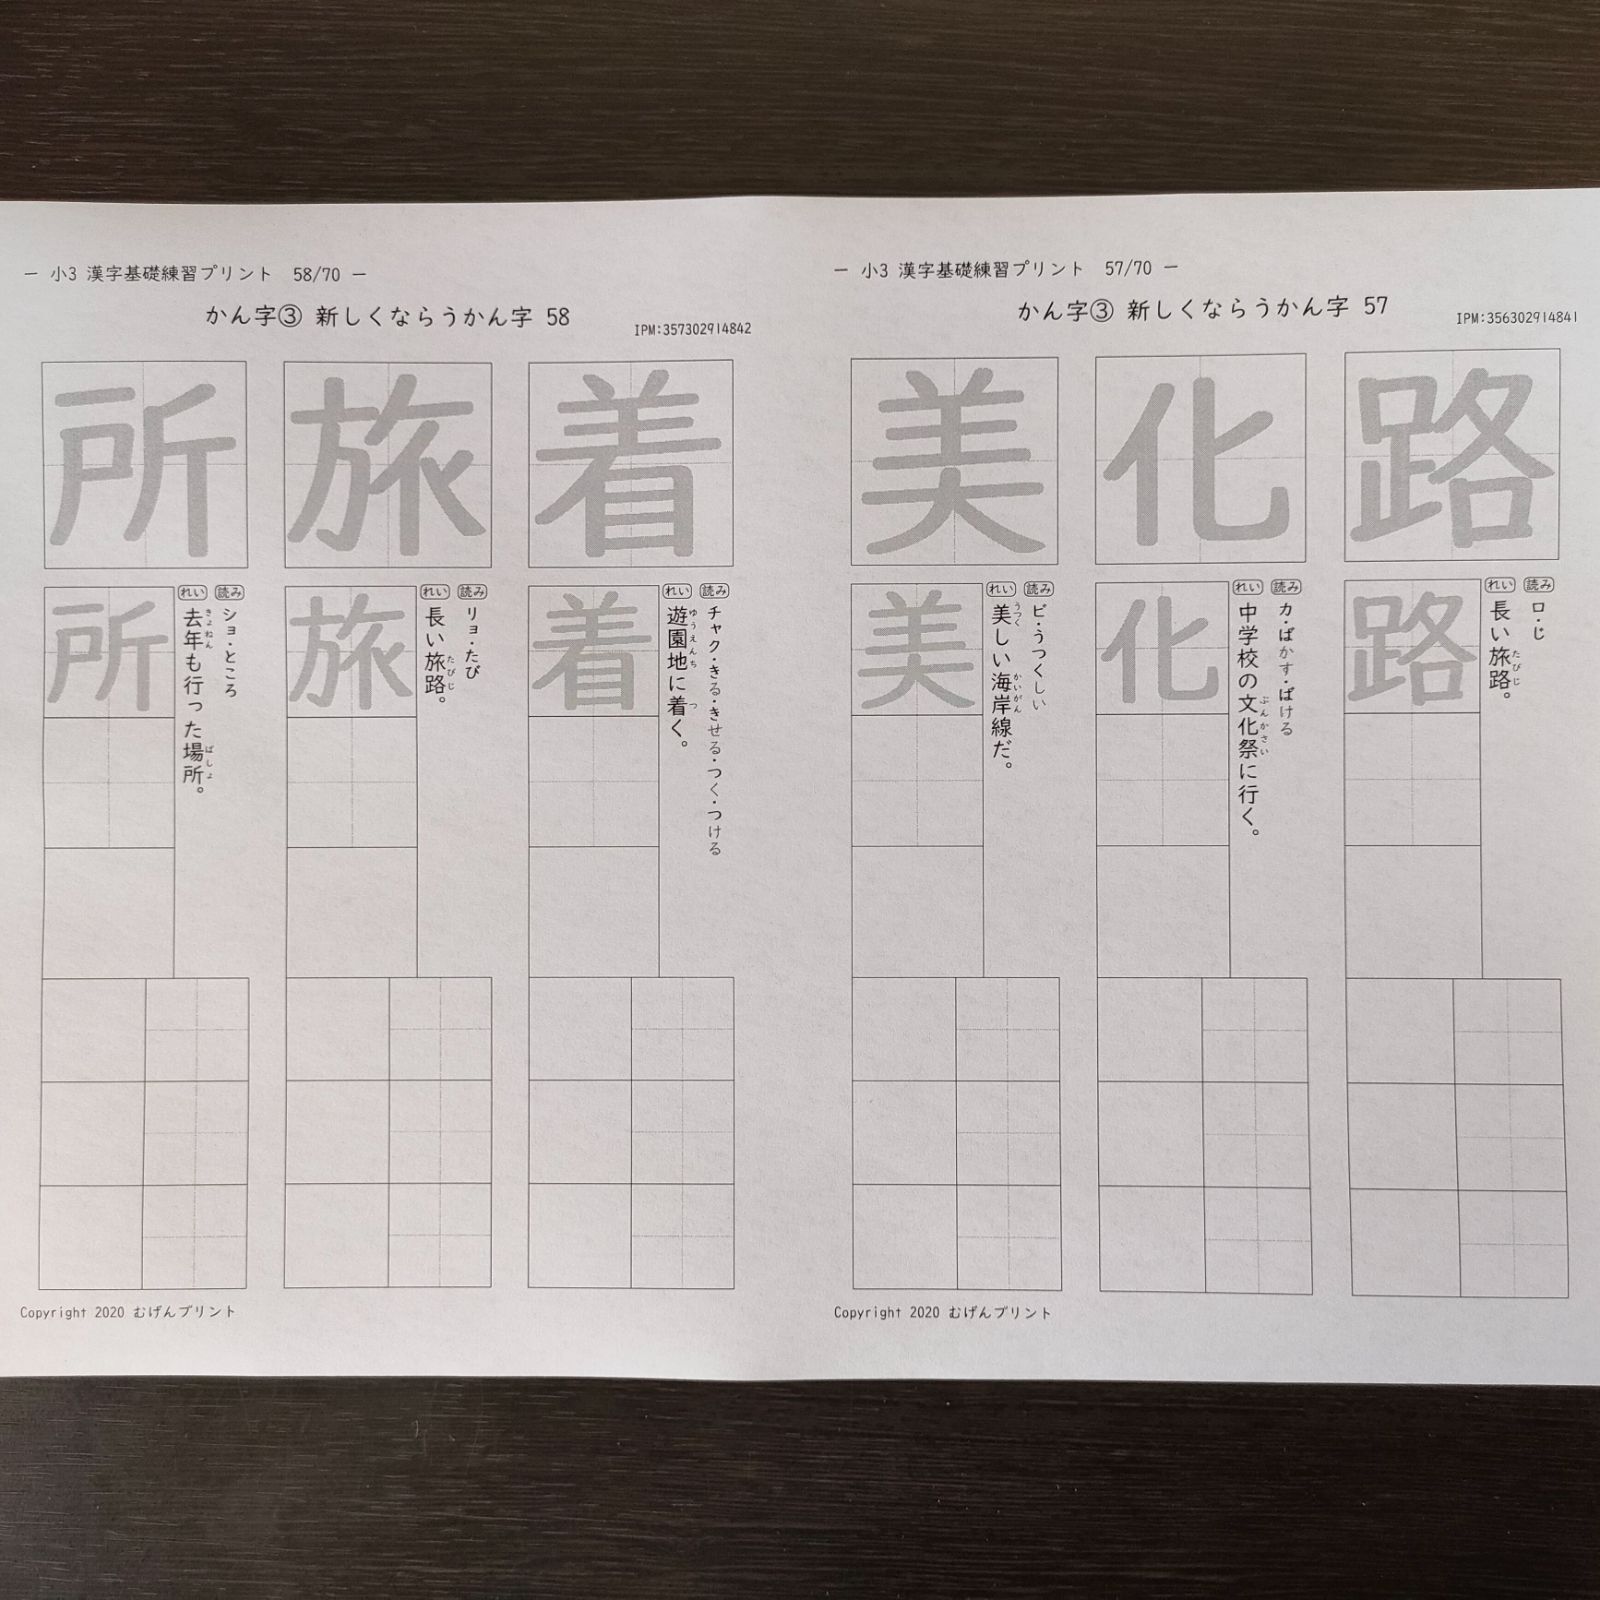 ― 小3 漢字基礎練習プリント 57/70 ―
かん字③ 新しくならうかん字 57
IPM:356302914841
路
読み
ロ・じ
れい
長い旅路。
たびじ
路
化
読み
カ・ばかす・ばける
れい
中学校の文化祭に行く。
ぶんかさい
化
美
読み
ビ・うつくしい
れい
美しい海岸線だ。
うつく
かいがん
美
Copyright 2020 むげんプリント
― 小3 漢字基礎練習プリント 58/70 ―
かん字③ 新しくならうかん字 58
IPM:357302914842
着
読み
チャク・きる・きせる・つく・つける
れい
遊園地に着く。
ゆうえんち
つ
着
旅
読み
リョ・たび
れい
長い旅路。
たびじ
旅
所
読み
ショ・ところ
れい
去年も行った場所。
きょねん
ばしょ
所
Copyright 2020 むげんプリント